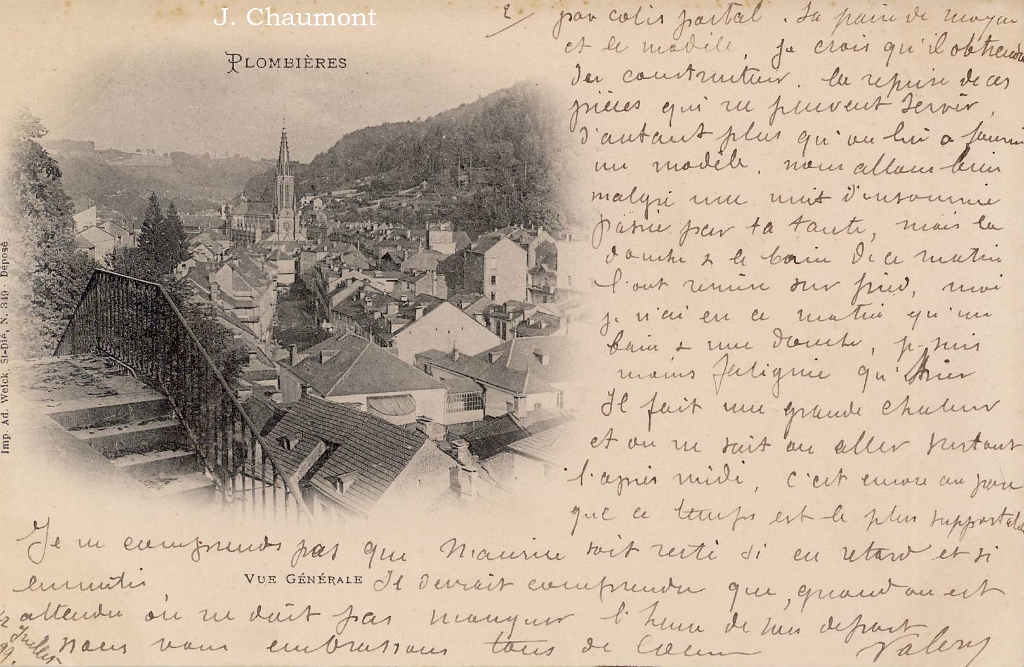 J. Chaumont
2
PLOMBIÈRES
par colis postal. La paire de moyeu
et le modèle, je crois qu'il obtiendra
du constructeur la reprise de ces
pièces qui ne peuvent servir,
d'autant plus qu'on lui a fourni
un modèle. nous allons bien
malgré une nuit d'insomnie
passée par ta tante, mais la
douche & le bain de ce matin
l'ont remise sur pied, moi
je n'ai eu ce matin qu'un
bain & une douche, je suis
moins fatiguée qu'hier
Il fait une grande chaleur
et on ne sait où aller surtout
l'après midi, c'est encore au parc
que ce temps est le plus supportable
Je ne comprends pas que Maurice soit resté si en retard et si
VUE GÉNÉRALE Il devrait comprendre que, quand on est
attendu on ne doit pas manquer l'heure de départ
Nous vous embrassons tous de Coeur Valery
Juillet
99.
Imp. Ad. Weick, St-Dié, N. 349 - Déposé